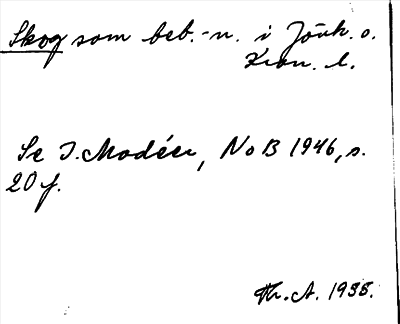 Skog som beb.-n. i Jönk. o.
Kron. l.
Se I. Modéer, NoB 1946, s.
20 f.
Th. A. 1958.